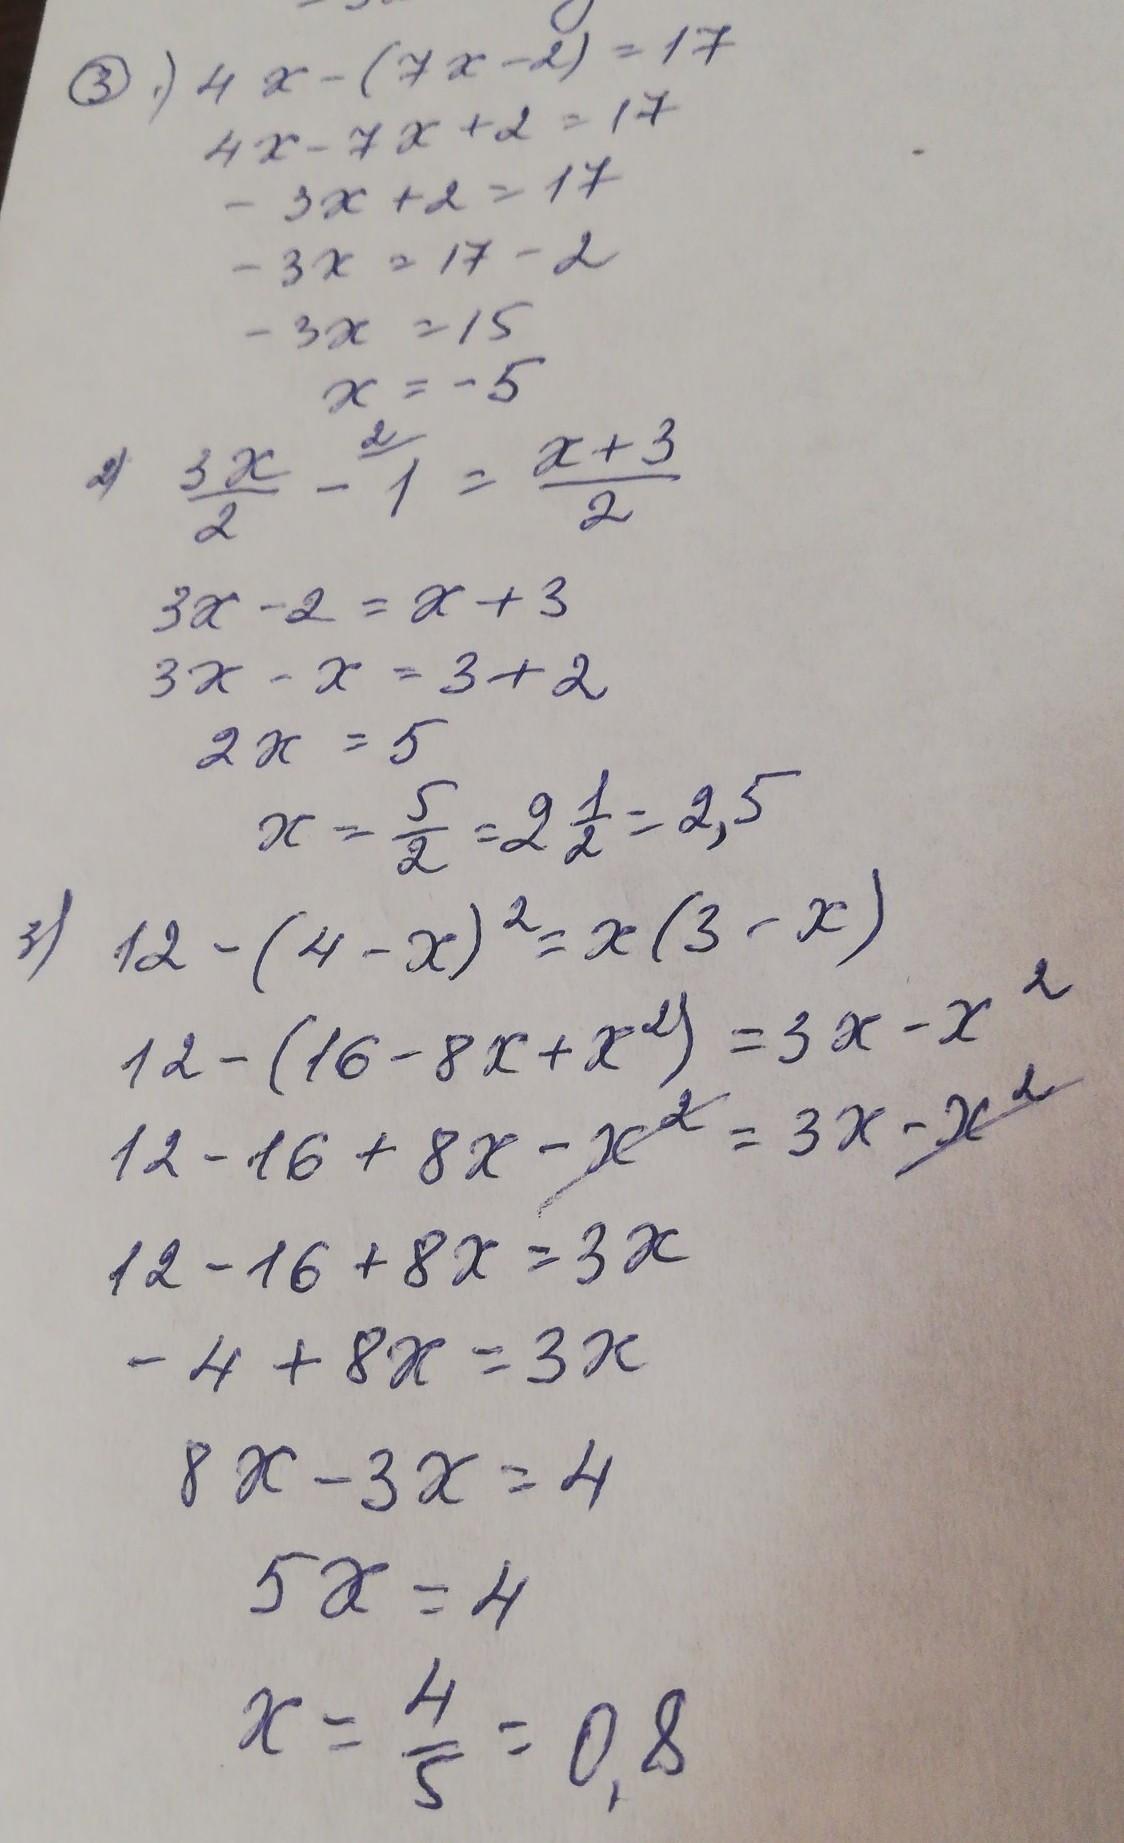 ③ 1) 4x-(7x-2)=17
4x-7x+2=17
-3x+2=17
-3x=17-2
-3x=15
x=-5
2) 3x/2 - 1 (2 = (x+3)/2
3x-2=x+3
3x-x=3+2
2x=5
x=5/2=2 1/2=2,5
3) 12-(4-x)²=x(3-x)
12-(16-8x+x²)=3x-x²
12-16+8x-x²=3x-x²
12-16+8x=3x
-4+8x=3x
8x-3x=4
5x=4
x=4/5=0,8